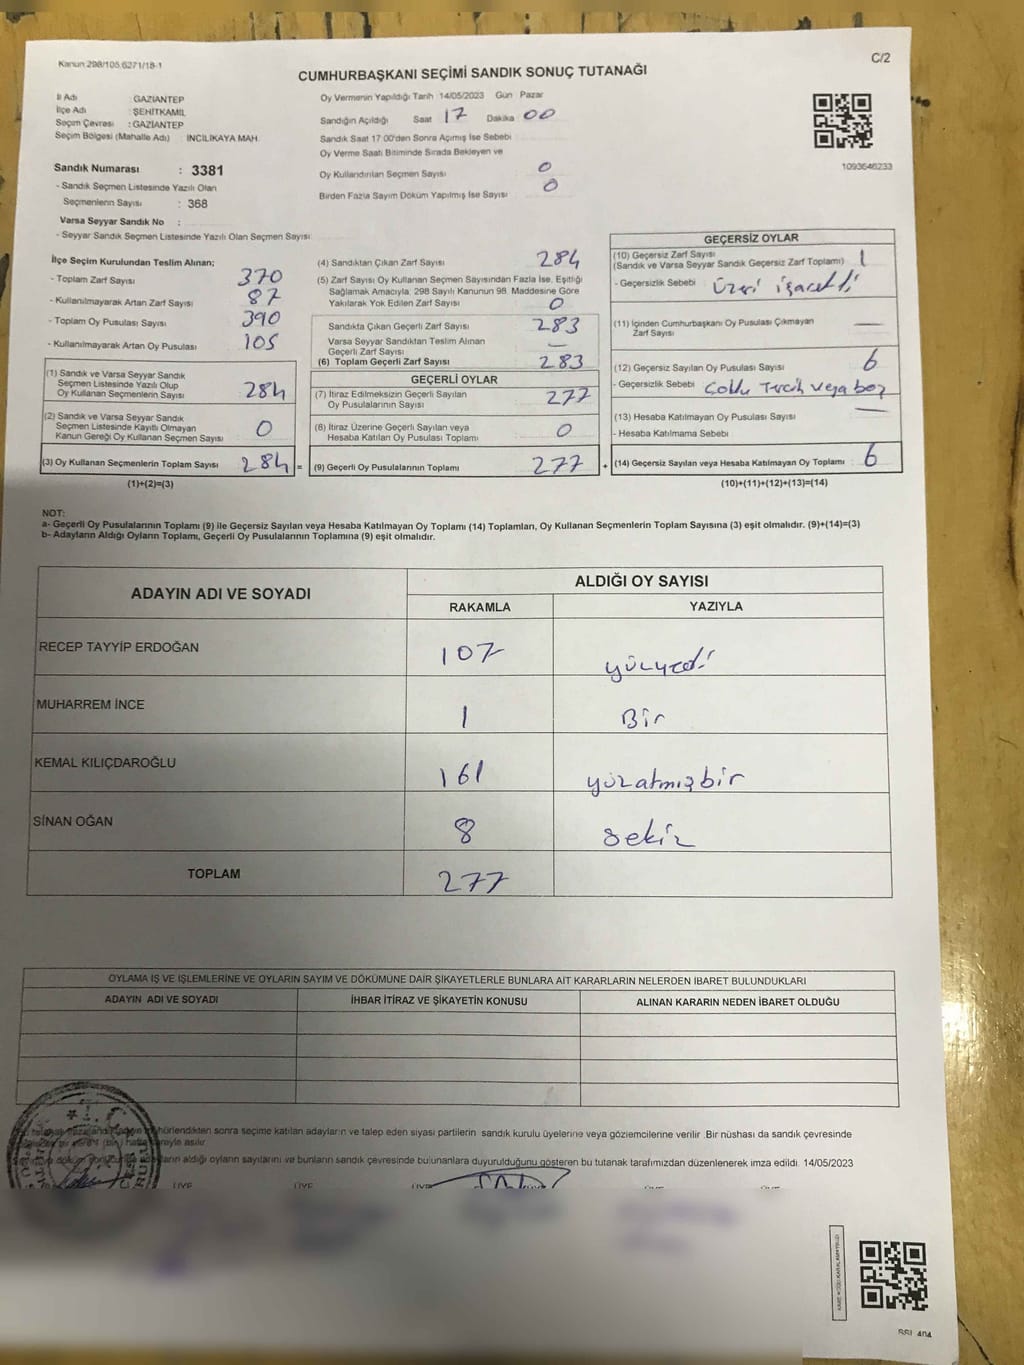 Kanun 298/105,6271/18-1
C/2
CUMHURBAŞKANI SEÇİMİ SANDIK SONUÇ TUTANAĞI
İl Adı : GAZİANTEP
İlçe Adı : ŞEHİTKAMİL
Seçim Çevresi : GAZİANTEP
Seçim Bölgesi (Mahalle Adı) INCILIKAYA MAH.
Sandık Numarası : 3381
- Sandık Seçmen Listesinde Yazılı Olan
Seçmenlerin Sayısı : 368
Varsa Seyyar Sandık No :
- Seyyar Sandık Seçmen Listesinde Yazılı Olan Seçmen Sayısı:
Oy Vermenin Yapıldığı Tarih 14/05/2023 Gün Pazar
Sandığın Açıldığı Saat 17 Dakika 00
Sandık Saat 17:00'den Sonra Açmış İse Sebebi
Oy Verme Saati Bitiminde Sırada Bekleyen ve
Oy Kullandırılan Seçmen Sayısı 0
Birden Fazla Sayım Döküm Yapılmış İse Sayısı 0
1093646233
İlçe Seçim Kurulundan Teslim Alınan;
- Toplam Zarf Sayısı 370
- Kullanılmayarak Artan Zarf Sayısı 87
- Toplam Oy Pusulası Sayısı 390
- Kullanılmayarak Artan Oy Pusulası 105
(1) Sandık ve Varsa Seyyar Sandık
Seçmen Listesinde Yazılı Olup
Oy Kullanan Seçmenlerin Sayısı 284
(2) Sandık ve Varsa Seyyar Sandık
Seçmen Listesinde Kayıtlı Olmayan
Kanun Gereği Oy Kullanan Seçmen Sayısı 0
(3) Oy Kullanan Seçmenlerin Toplam Sayısı 284 =
(1)+(2)=(3)
(4) Sandıktan Çıkan Zarf Sayısı 284
(5) Zarf Sayısı Oy Kullanan Seçmen Sayısından Fazla İse, Eşitliği
Sağlamak Amacıyla, 298 Sayılı Kanunun 98. Maddesine Göre
Yakılarak Yok Edilen Zarf Sayısı 0
Sandıkta Çıkan Geçerli Zarf Sayısı 283
Varsa Seyyar Sandıktan Teslim Alınan
Geçerli Zarf Sayısı —
(6) Toplam Geçerli Zarf Sayısı 283
GEÇERLİ OYLAR
(7) İtiraz Edilmeksizin Geçerli Sayılan
Oy Pusulalarının Sayısı 277
(8) İtiraz Üzerine Geçerli Sayılan veya
Hesaba Katılan Oy Pusulası Toplamı 0
(9) Geçerli Oy Pusulalarının Toplamı 277 +
GEÇERSİZ OYLAR
(10) Geçersiz Zarf Sayısı
(Sandık ve Varsa Seyyar Sandık Geçersiz Zarf Toplamı) 1
- Geçersizlik Sebebi Üzeri işaretli
(11) İçinden Cumhurbaşkanı Oy Pusulası Çıkmayan
Zarf Sayısı —
(12) Geçersiz Sayılan Oy Pusulası Sayısı 6
- Geçersizlik Sebebi Çoklu Tercih veya boş
(13) Hesaba Katılmayan Oy Pusulası Sayısı —
- Hesaba Katılmama Sebebi
(14) Geçersiz Sayılan veya Hesaba Katılmayan Oy Toplamı : 6
(10)+(11)+(12)+(13)=(14)
NOT:
a- Geçerli Oy Pusulalarının Toplamı (9) ile Geçersiz Sayılan veya Hesaba Katılmayan Oy Toplamı (14) Toplamları, Oy Kullanan Seçmenlerin Toplam Sayısına (3) eşit olmalıdır. (9)+(14)=(3)
b- Adayların Aldığı Oyların Toplamı, Geçerli Oy Pusulalarının Toplamına (9) eşit olmalıdır.
ADAYIN ADI VE SOYADI
ALDIĞI OY SAYISI
RAKAMLA YAZIYLA
RECEP TAYYİP ERDOĞAN 107 yüzyedi
MUHARREM İNCE 1 Bir
KEMAL KILIÇDAROĞLU 161 yüzatmışbir
SİNAN OĞAN 8 sekiz
TOPLAM 277
OYLAMA İŞ VE İŞLEMLERİNE VE OYLARIN SAYIM VE DÖKÜMÜNE DAİR ŞİKAYETLERLE BUNLARA AİT KARARLARIN NELERDEN İBARET BULUNDUKLARI
ADAYIN ADI VE SOYADI İHBAR İTİRAZ VE ŞİKAYETİN KONUSU ALINAN KARARIN NEDEN İBARET OLDUĞU
sonra seçime katılan adayların ve talep eden siyasi partilerin sandık kurulu üyelerine veya gözlemcilerine verilir .Bir nüshası da sandık çevresinde
asılır
aldığı oyların sayılarını ve bunların sandık çevresinde bulunanlara duyurulduğunu gösteren bu tutanak tarafımızdan düzenlenerek imza edildi. 14/05/2023
ÜYE ÜYE ÜYE